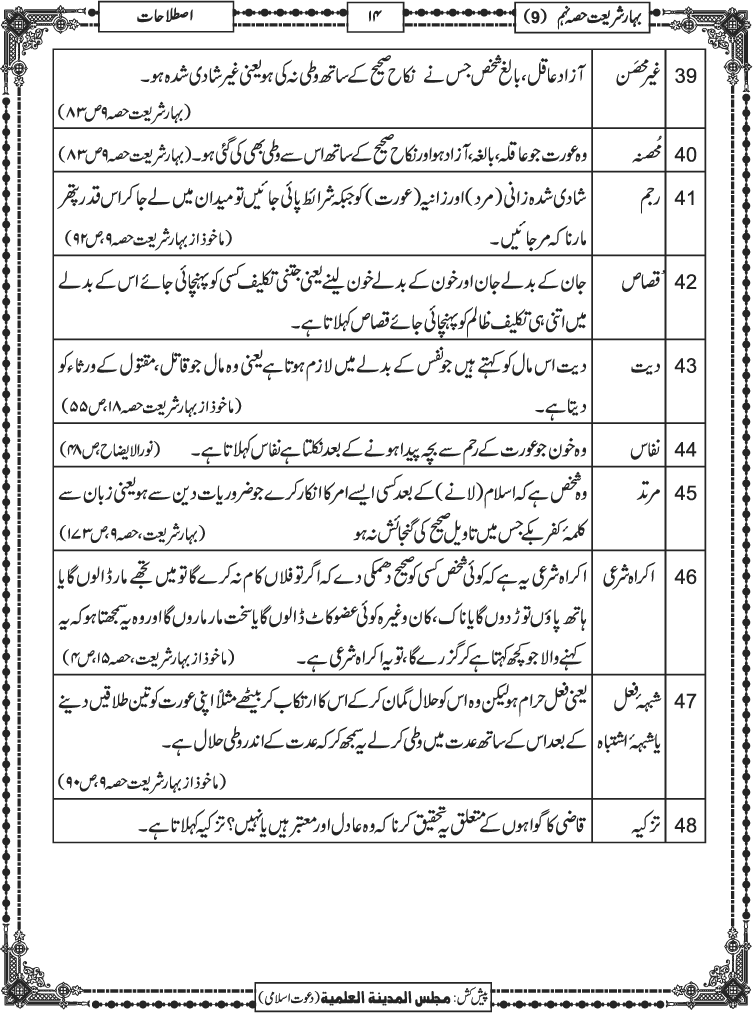 بہار شریعت حصہ نہم (9)
۱۴
اصطلاحات
39 غیر محصَن آزاد عاقل، بالغ شخص جس نے نکاح صحیح کے ساتھ وطی نہ کی ہو یعنی غیر شادی شدہ ہو۔
(بہار شریعت حصہ ۹ ص ۸۳)
40 مُحصنہ وہ عورت جو عاقلہ، بالغہ، آزاد ہو اور نکاح صحیح کے ساتھ اس سے وطی بھی کی گئی ہو۔ (بہار شریعت حصہ ۹ ص ۸۳)
41 رجم شادی شدہ زانی (مرد) اور زانیہ (عورت) کو جبکہ شرائط پائی جائیں تو میدان میں لے جا کر اس قدر پتھر
مارنا کہ مر جائیں۔ (ماخوذ از بہار شریعت حصہ ۹، ص ۹۲)
42 قصاص جان کے بدلے جان اور خون کے بدلے خون لینے یعنی جتنی تکلیف کسی کو پہنچائی جائے اس کے بدلے
میں اتنی ہی تکلیف ظالم کو پہنچائی جائے قصاص کہلاتا ہے۔
43 دیت دیت اس مال کو کہتے ہیں جو نفس کے بدلے میں لازم ہوتا ہے یعنی وہ مال جو قاتل، مقتول کے ورثاء کو
دیتا ہے۔ (ماخوذ از بہار شریعت حصہ ۱۸، ص ۵۵)
44 نفاس وہ خون جو عورت کے رحم سے بچہ پیدا ہونے کے بعد نکلتا ہے نفاس کہلاتا ہے۔ (نور الایضاح، ص ۴۸)
45 مرتد وہ شخص ہے کہ اسلام (لانے) کے بعد کسی ایسے امر کا انکار کرے جو ضروریات دین سے ہو یعنی زبان سے
کلمۂ کفر بکے جس میں تاویل صحیح کی گنجائش نہ ہو (بہار شریعت، حصہ ۹، ص ۱۷۳)
46 اکراہ شرعی اکراہ شرعی یہ ہے کہ کوئی شخص کسی کو صحیح دھمکی دے کہ اگر تو فلاں کام نہ کرے گا تو میں تجھے مار ڈالوں گا یا
ہاتھ پاؤں توڑ دوں گا یا ناک، کان وغیرہ کوئی عضو کاٹ ڈالوں گا یا سخت مار ماروں گا اور وہ یہ سمجھتا ہو کہ یہ
کہنے والا جو کچھ کہتا ہے کر گزرے گا، تو یہ اکراہ شرعی ہے۔ (ماخوذ از بہار شریعت، حصہ ۱۵، ص ۴)
47 شبہۂ فعل یعنی فعل حرام ہو لیکن وہ اس کو حلال گمان کر کے اس کا ارتکاب کر بیٹھے مثلاً اپنی عورت کو تین طلاقیں دینے
یا شبہۂ اشتباہ کے بعد اس کے ساتھ عدت میں وطی کر لے یہ سمجھ کر کہ عدت کے اندر وطی حلال ہے۔
(ماخوذ از بہار شریعت حصہ ۹، ص ۹۰)
48 تزکیہ قاضی کا گواہوں کے متعلق یہ تحقیق کرنا کہ وہ عادل اور معتبر ہیں یا نہیں؟ تزکیہ کہلاتا ہے۔
پیش کش: مجلس المدينة العلمية (دعوت اسلامی)